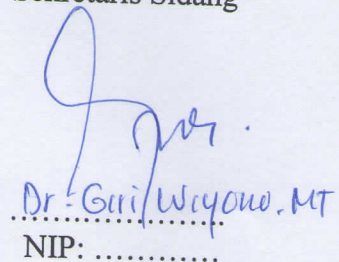 Sekretaris Sidang
Dr. Giri Wiyono. MT
.....................
NIP: ............